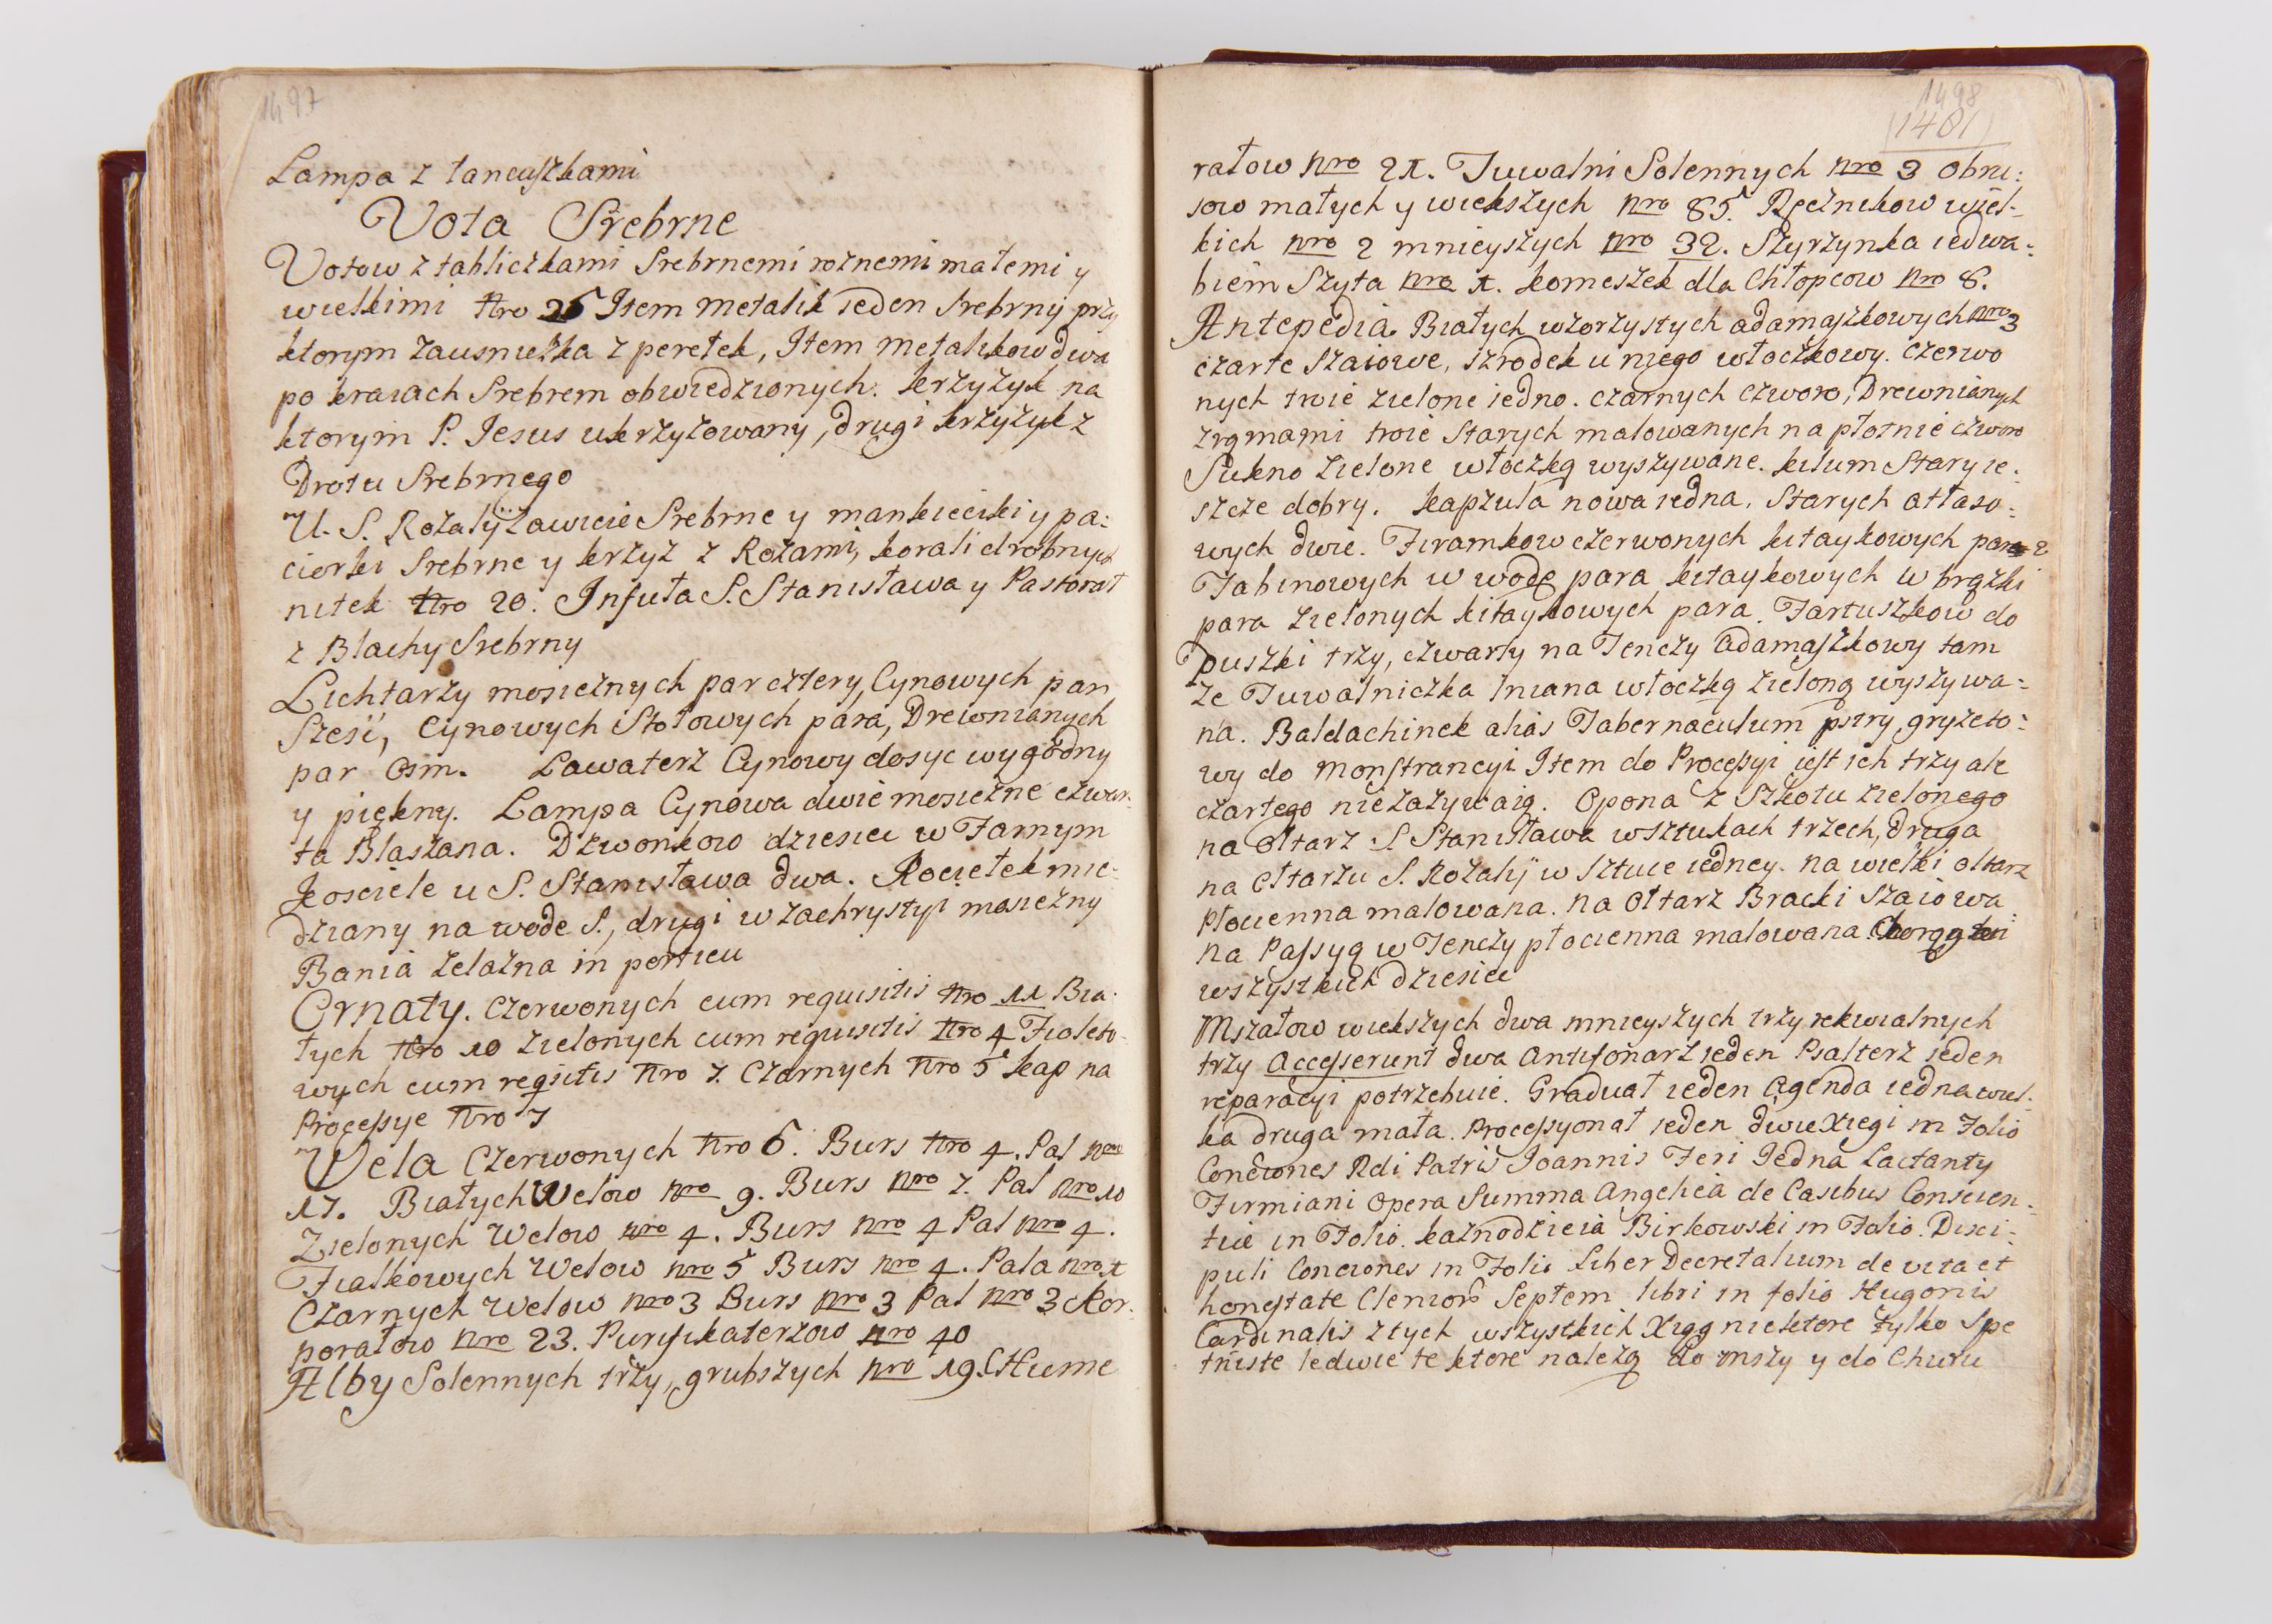 1497
Lampa z łancuszkami
Vota Srebrne
Votow z tabliczkami Srebrnemi roznemi małemi y
wielkimi Nro 26 Item metalik ieden Srebrny przy
ktorym zausniczka z perełek, Item metalikow dwa
po kraiach Srebrem obwiedzionych. krzyzyk na
ktorym P. Jesus ukrzyzowany, drugi krzyzyk z
Drotu Srebrnego
U. S. Rozalÿ Zawicie Srebrne y mankieciki y pa:
ciorki Srebrne y krzyz z Rozami, korali drobnych
nitek Nro 20. Infuła S. Stanisława y Pastorał
z Blachy Srebrny
Lichtarzy mosieznych par cztery, Cynowych par
Szesć, Cynowych Stołowych para, Drewnianych
par Osm. Lawaterz Cynowy dosyc wygodny
y piękny. Lampa Cynowa dwie mosiezne czwar:
ta Blaszana. Dzwonkow dziesiec w Farnym
kosciele u S. Stanisława dwa. Kociełek mie:
dziany na wode S., drugi w zachrystyi mosiezny
Bania zelazna in porticu
Ornaty. Czerwonych cum requisitis Nro 11 Bia:
łych Nro 10 zielonych cum requisitis Nro 4 Fioleto:
wych cum reqsitis Nro 7. Czarnych Nro 5 kap na
Processye Nro 7
Vela Czerwonych Nro 6. Burs Nro 4. Pal Nro
17. Białych Welow Nro 9. Burs Nro 7. Pal Nro 10
Zielonych Welow Nro 4. Burs Nro 4 Pal Nro 4.
Fialkowych Welow Nro 5 Burs Nro 4. Pala Nro 1
Czarnych Welow Nro 3 Burs Nro 3 Pal Nro 3 Kor:
porałow Nro 23. Puryfikaterzow Nro 40
Alby Solennych trzy, grubszych Nro 19. Hume
1498
(1481)
rałow Nro 21. Tuwalni Solennych Nro 3 Obru:
sow małych y wiekszych Nro 85. Ręcznikow wiel:
kich Nro 2 mnieyszych Nro 32. Szyrzynka iedwa:
biem Szyta Nro 1. komeszek dla Chłopcow Nro 8.
Antepedia Białych wzorzystych adamaszkowych Nro 3
czarte Szaiowe, szrodek u niego włoczkowy. Czerwo
nych troie zielone iedno. Czarnych czworo, Drewnianych
z rąmami troie Starych malowanych na płotnie czworo
Sukno zielone włoczką wyszywane. kilum Stary ie:
szcze dobry. kapzula nowa iedna. Starych atłaso:
wych dwie. Firamkow czerwonych kitaykowych para 2
Tabinowych w wodę para kitaykowych w brązki
para zielonych kitaykowych para. Fartuszkow do
puszki trzy, czwarty na Tenczy adamaszkowy tam
ze Tuwalniczka lniana włoczką zieloną wyszywa:
na. Baldachinek alias Tabernaculum pstry gryzeto:
wy do monstrancyi Item do Processyi iest ich trzy ale
czartego nie zazywaią. Opona z Szkotu zielonego
na Ołtarz S. Stanisława w sztukach trzech, druga
na Ołtarzu S. Rozalÿ w Sztuce iedney. na wielki ołtarz
płocienna malowana. na Ołtarz Bracki Szaiowa
na Passyą w Tenczy płocienna malowana Chorągwi
wszystkich dziesiec
Mszałow wiekszych dwa mnieyszych trzy rekwialnych
trzy Accesserunt dwa Antyfonarz ieden Psałterz ieden
reparacyi potrzebuie. Graduał ieden Agenda iedna wiel:
ka druga mała. Processyonał ieden dwie Xięgi in Folio
Conciones Rdi Patris Joannis Feri Jedna Lactanty
Firmiani Opera Summa Angelica de Casibus Conscien:
tiæ in Folio. kaznodzieia Birkowski in Folio. Disci:
puli Conciones in Folio Liber Decretalium de vita et
honestate Clericor Septem libri in folio Hugonis
Cardinalis z tych wszystkich Xiąg niektore tylko Spe
tniste ledwie te ktore nalezą do mszy y do Churu